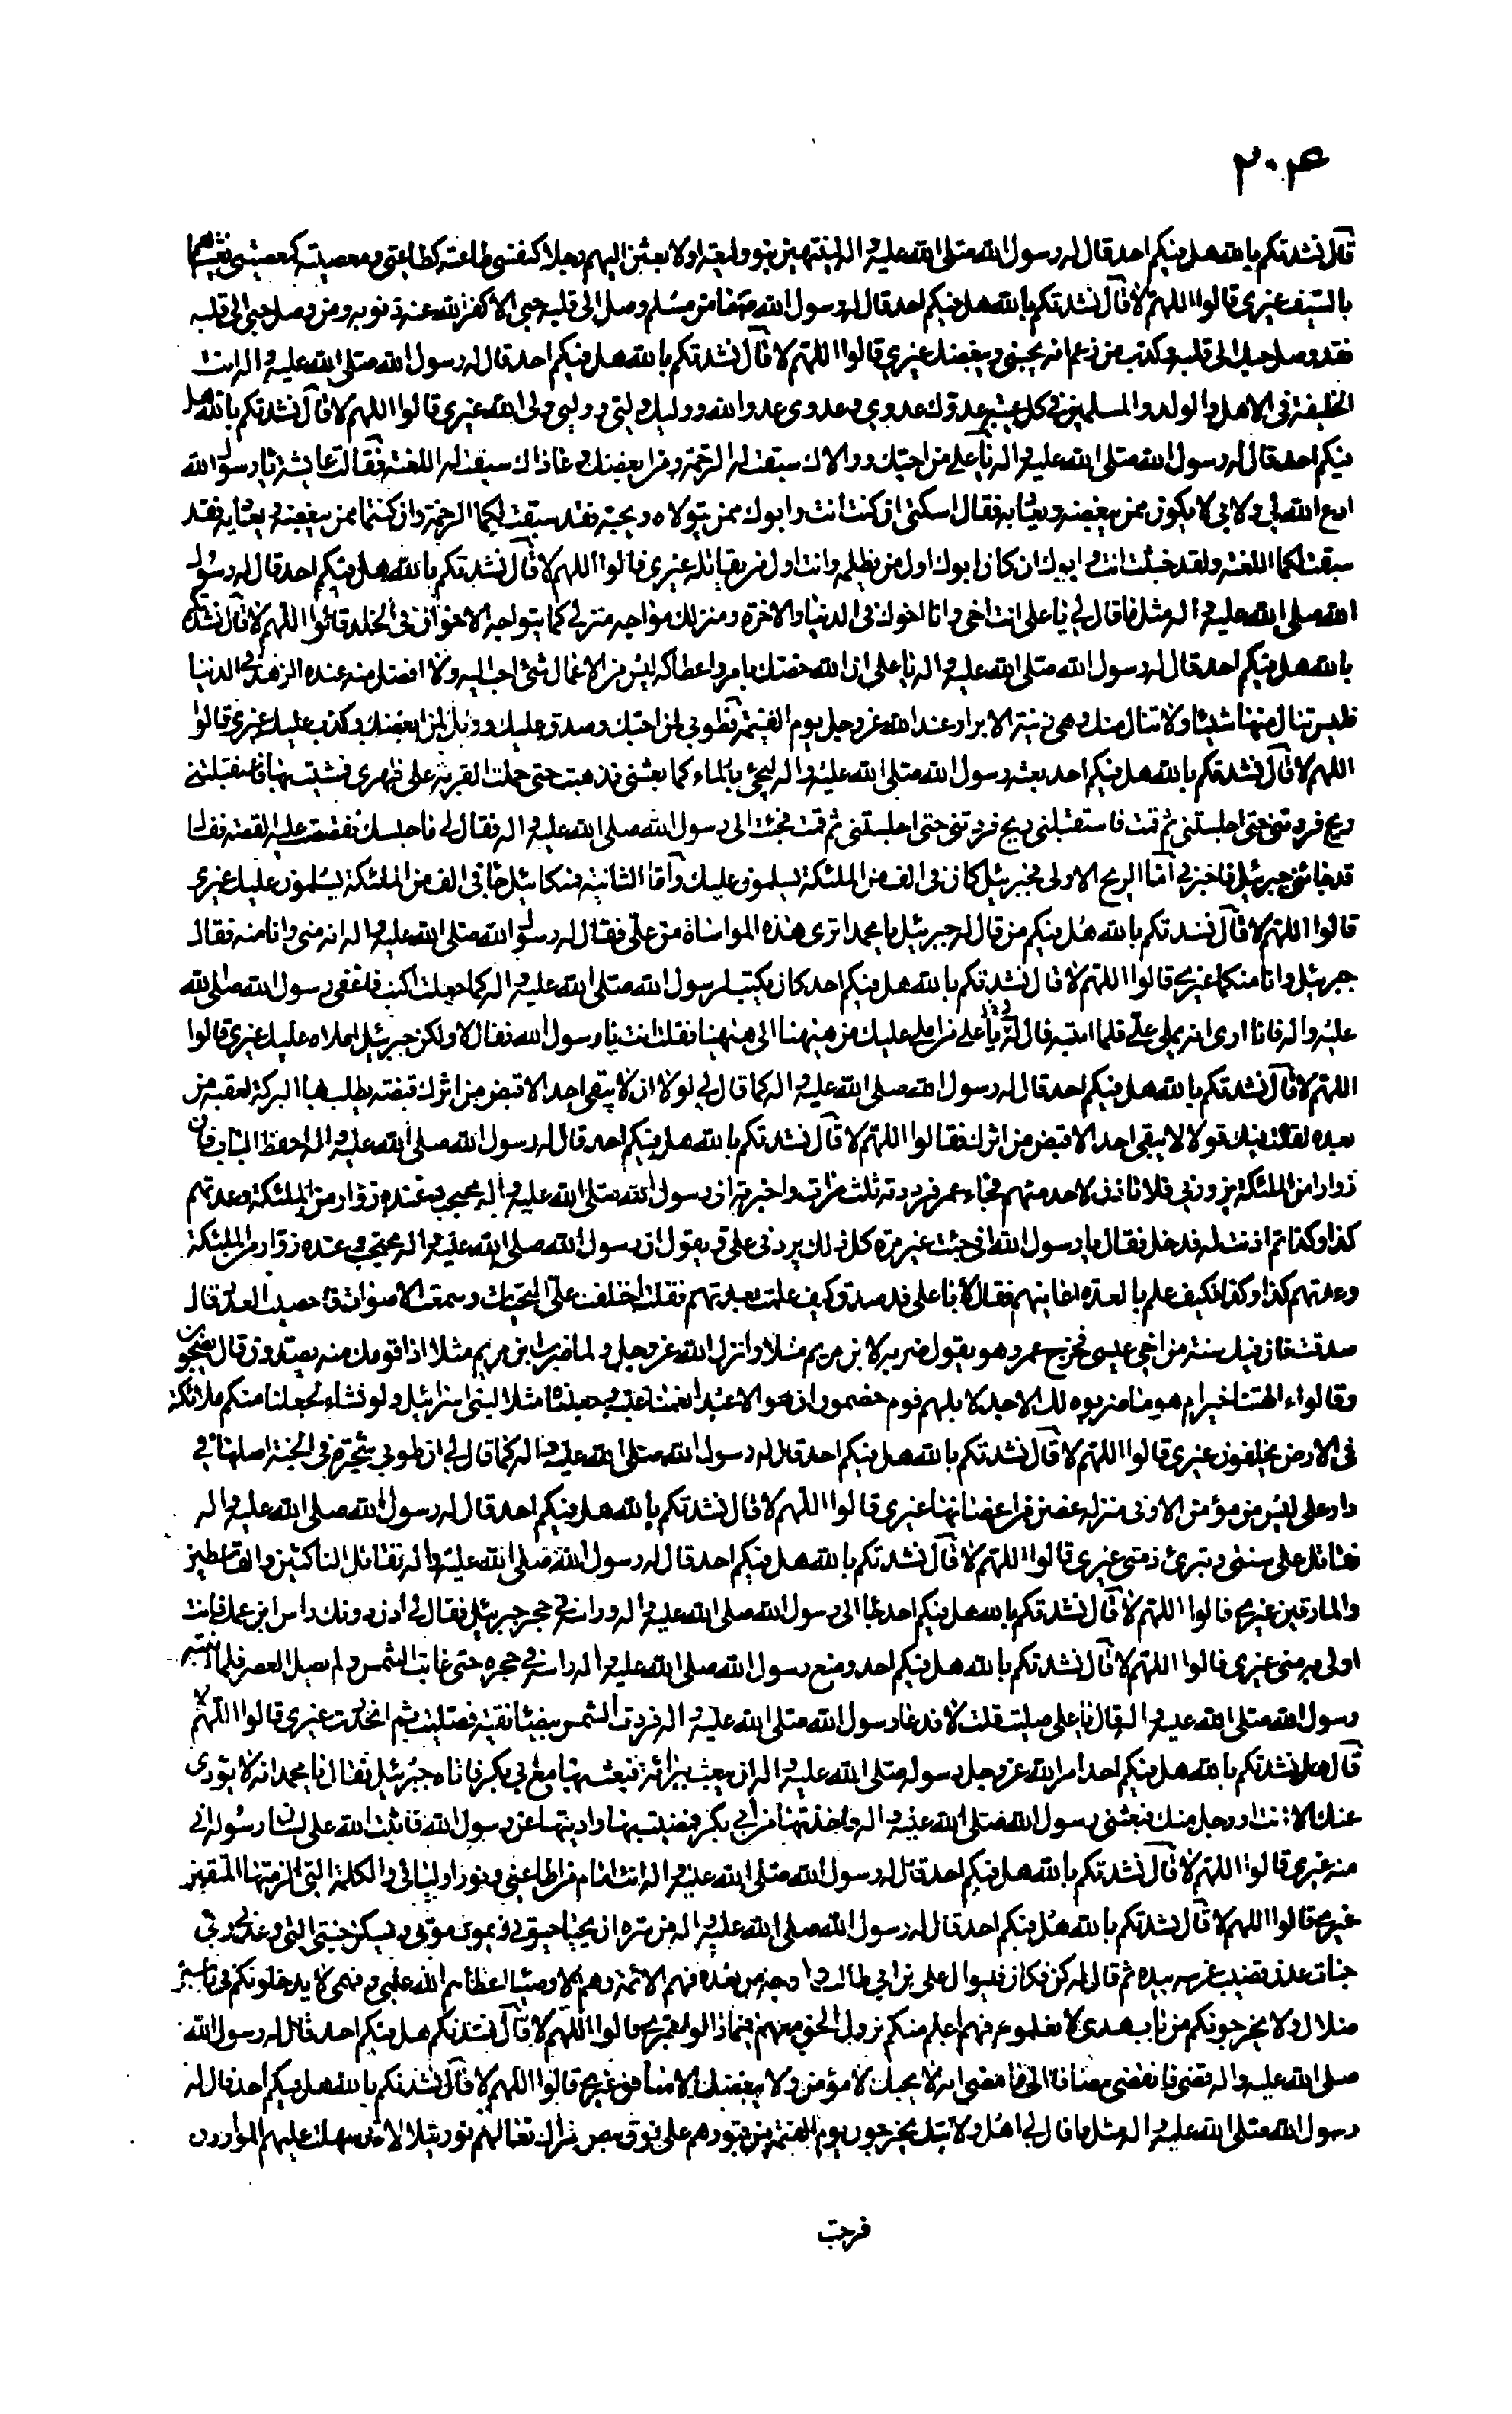 ص ٢٠٣
قال نشدتكم بالله هل فيكم احد قال له رسول الله صلى الله عليه و اله لينتهين بنو وليعة او لابعثن اليهم رجلا كنفسى طاعته كطاعتى و معصيته كمعصيتى يغشيهم
بالسيف غيرى قالوا اللهم لا قال نشدتكم بالله هل فيكم احد قال له رسول الله ص ما من مسلم وصل الى قلبه حبى الا كفر الله عنه ذنوبه و من وصل حبى الى قلبه
فقد وصل حبك الى قلبه و كذب من زعم انه يحبنى و يبغضك غيرى قالوا اللهم لا قال نشدتكم بالله هل فيكم احد قال له رسول الله صلى الله عليه و اله انت
الخليفة فى الاهل و الولد و المسلمين فى كل غيبة عدوك عدوى و عدوى عدو الله و وليك وليى و وليى ولى الله غيرى قالوا اللهم لا قال نشدتكم بالله هل
فيكم احد قال له رسول الله صلى الله عليه و اله يا على من احبك و والاك سبقت له الرحمة و من ابغضك و عاداك سبقت له اللعنة فقالت عايشة يا رسول الله
ادع الله لى و لابى لا يكون ممن يبغضه و يعاديه فقال اسكتى ان كنت انت و ابوك ممن يتولاه و يحبه فقد سبقت لكما الرحمة و ان كنتما ممن يبغضه و يعاديه فقد
سبقت لكما اللعنة و لقد خبثت انت و ابوك ان كان ابوك اول من يظلمه و انت اول من يقاتله غيرى قالوا اللهم لا قال نشدتكم بالله هل فيكم احد قال له رسول
الله صلى الله عليه و اله مثل ما قال لى يا على انت اخى و انا اخوك فى الدنيا و الاخرة و منزلك مواجه منزلى كما يتواجه الاخوان فى الخلد قالوا اللهم لا قال نشدتكم
بالله هل فيكم احد قال له رسول الله صلى الله عليه و اله يا على ان الله خصك بامر و اعطاكه ليس من الاعمال شئ احب اليه و لا افضل منه عنده الزهد فى الدنيا
فليس تنال منها شيئا و لا تنال منك و هى زينة الابرار عند الله عز و جل يوم القيمة فطوبى لمن احبك و صدق عليك و ويل لمن ابغضك و كذب عليك غيرى قالوا
اللهم لا قال نشدتكم بالله هل فيكم احد بعثه رسول الله صلى الله عليه و اله ليجئ بالماء كما بعثنى فذهبت حتى حملت القربة على ظهرى فمشيت بها فاستقبلتنى
ريح فردتنى حتى اجلستنى ثم قمت فاستقبلتنى ريح فردتنى حتى اجلستنى ثم قمت فجئت الى رسول الله صلى الله عليه و اله فقال لى ما حبسك فقصصت عليه القصة فقال
قد جائنى جبرئيل فاخبرنى اما الريح الاولى فجبرئيل كان فى الف من الملئكة يسلمون عليك و اما الثانية فميكائيل جاء فى الف من الملئكة يسلمون عليك غيرى
قالوا اللهم لا قال نشدتكم بالله هل فيكم من قال له جبرئيل يا محمد اترى هذه المواساة من على فقال له رسول الله صلى الله عليه و اله انه منى و انا منه فقال
جبرئيل و انا منكما غيرى قالوا اللهم لا قال نشدتكم بالله هل فيكم احد كان يكتب لرسول الله صلى الله عليه و اله كما جعلت اكتب فاغفى رسول الله صلى الله
عليه و اله فانا ارى انه يملى على فلما انتبه قال له يا على من املى عليك من هيهنا الى هيهنا فقلت انت يا رسول الله فقال لا و لكن جبرئيل املاه عليك غيرى قالوا
اللهم لا قال نشدتكم بالله هل فيكم احد قال له رسول الله صلى الله عليه و اله كما قال لى لو لا ان لا يبقى احد الا قبض من اثرك قبضة يطلب بها البركة لعقبه من
بعده لقلت فيك قولا لا يبقى احد الا قبض من اثرك فقالوا اللهم لا قال نشدتكم بالله هل فيكم احد قال له رسول الله صلى الله عليه و اله احفظ الباب فان
زوارا من الملئكة يزورنى فلا تاذن لاحد منهم فجاء عمر فرددته ثلث مرات و اخبرته ان رسول الله صلى الله عليه و اله محتجب و عنده زوار من الملئكة و عدتهم
كذا و كذا ثم اذنت له فدخل فقال يا رسول الله انى جئت غير مرة كل ذلك يردنى على و يقول ان رسول الله صلى الله عليه و اله محتجب و عنده زوار من الملئكة
و عدتهم كذا و كذا فكيف علم بالعدة اعاينهم فقال لا يا على قد صدق كيف علمت بعدتهم فقلت اختلفت على التحيات و سمعت الاصوات فاحصيت العدد قال
صدقت فان فيك سنة من اخى عيسى فخرج عمر و هو يقول ضربه لابن مريم مثلا و انزل الله عز و جل و لما ضرب ابن مريم مثلا اذا قومك منه يصدون قال يضجون
و قالوا ءالهتنا خير ام هو ما ضربوه لك الا جدلا بل هم قوم خصمون ان هو الا عبد انعمنا عليه و جعلناه مثلا لبنى اسرائيل و لو نشاء لجعلنا منكم ملائكة
فى الارض يخلفون غيرى قالوا اللهم لا قال نشدتكم بالله هل فيكم احد قال له رسول الله صلى الله عليه و اله كما قال لى ان طوبى شجرة فى الجنة اصلها فى
دار على ليس من مؤمن الا و فى منزله غصن من اغصانها غيرى قالوا اللهم لا قال نشدتكم بالله هل فيكم احد قال له رسول الله صلى الله عليه و اله
تقاتل على سنتى و تبرئ ذمتى غيرى قالوا اللهم لا قال نشدتكم بالله هل فيكم احد قال له رسول الله صلى الله عليه و اله تقاتل الناكثين و القاسطين
و المارقين غيرى قالوا اللهم لا قال نشدتكم بالله هل فيكم احد جاء الى رسول الله صلى الله عليه و اله و راسه فى حجر جبرئيل فقال لى ادن دونك راس ابن عمك فانت
اولى به منى غيرى قالوا اللهم لا قال نشدتكم بالله هل فيكم احد وضع رسول الله صلى الله عليه و اله راسه فى حجره حتى غابت الشمس و لم يصل العصر فلما انتبه
رسول الله صلى الله عليه و اله قال يا على صليت قلت لا فدعا رسول الله صلى الله عليه و اله فردت الشمس بيضاء نقية فصليت ثم انحدرت غيرى قالوا اللهم لا
قال هل نشدتكم بالله هل فيكم احد امر الله عز و جل رسوله صلى الله عليه و اله ان يبعث ببرائة فبعث بها مع ابى بكر فاتاه جبرئيل فقال يا محمد انه لا يؤدى
عنك الا انت او رجل منك فبعثنى رسول الله صلى الله عليه و اله فاخذتها من ابى بكر فمضيت بها و اديتها عن رسول الله فاثبت الله على لسان رسوله انى
منه غيرى قالوا اللهم لا قال نشدتكم بالله هل فيكم احد قال له رسول الله صلى الله عليه و اله انت امام من اطاعنى و نور اوليائى و الكلمة التى الزمتها المتقين
غيرى قالوا اللهم لا قال نشدتكم بالله هل فيكم احد قال له رسول الله صلى الله عليه و اله من سره ان يحيا حيوتى و يموت موتى و يسكن جنتى التى وعدنى ربى
جنات عدن قضيب غرسه بيده ثم قال له كن فكان فليوال على بن ابى طالب و ذريته من بعده فهم الائمة و هم الاوصياء اعطاهم الله علمى و فهمى لا يدخلونكم فى باب
ضلال و لا يخرجونكم من باب هدى لا تعلموهم فهم اعلم منكم يزول الحق معهم اينما زالوا غيرى قالوا اللهم لا قال نشدتكم هل فيكم احد قال له رسول الله
صلى الله عليه و اله قضى فانقضى ما انه لا يحبك الا مؤمن و لا يبغضك الا منافق غيرى قالوا اللهم لا قال نشدتكم بالله هل فيكم احد قال له
رسول الله صلى الله عليه و اله مثل ما قال لى اهل ولايتك يخرجون يوم القيمة من قبورهم على نوق بيض شراك نعالهم نور يتلألأ قد سهلت عليهم الموارد
فرجت